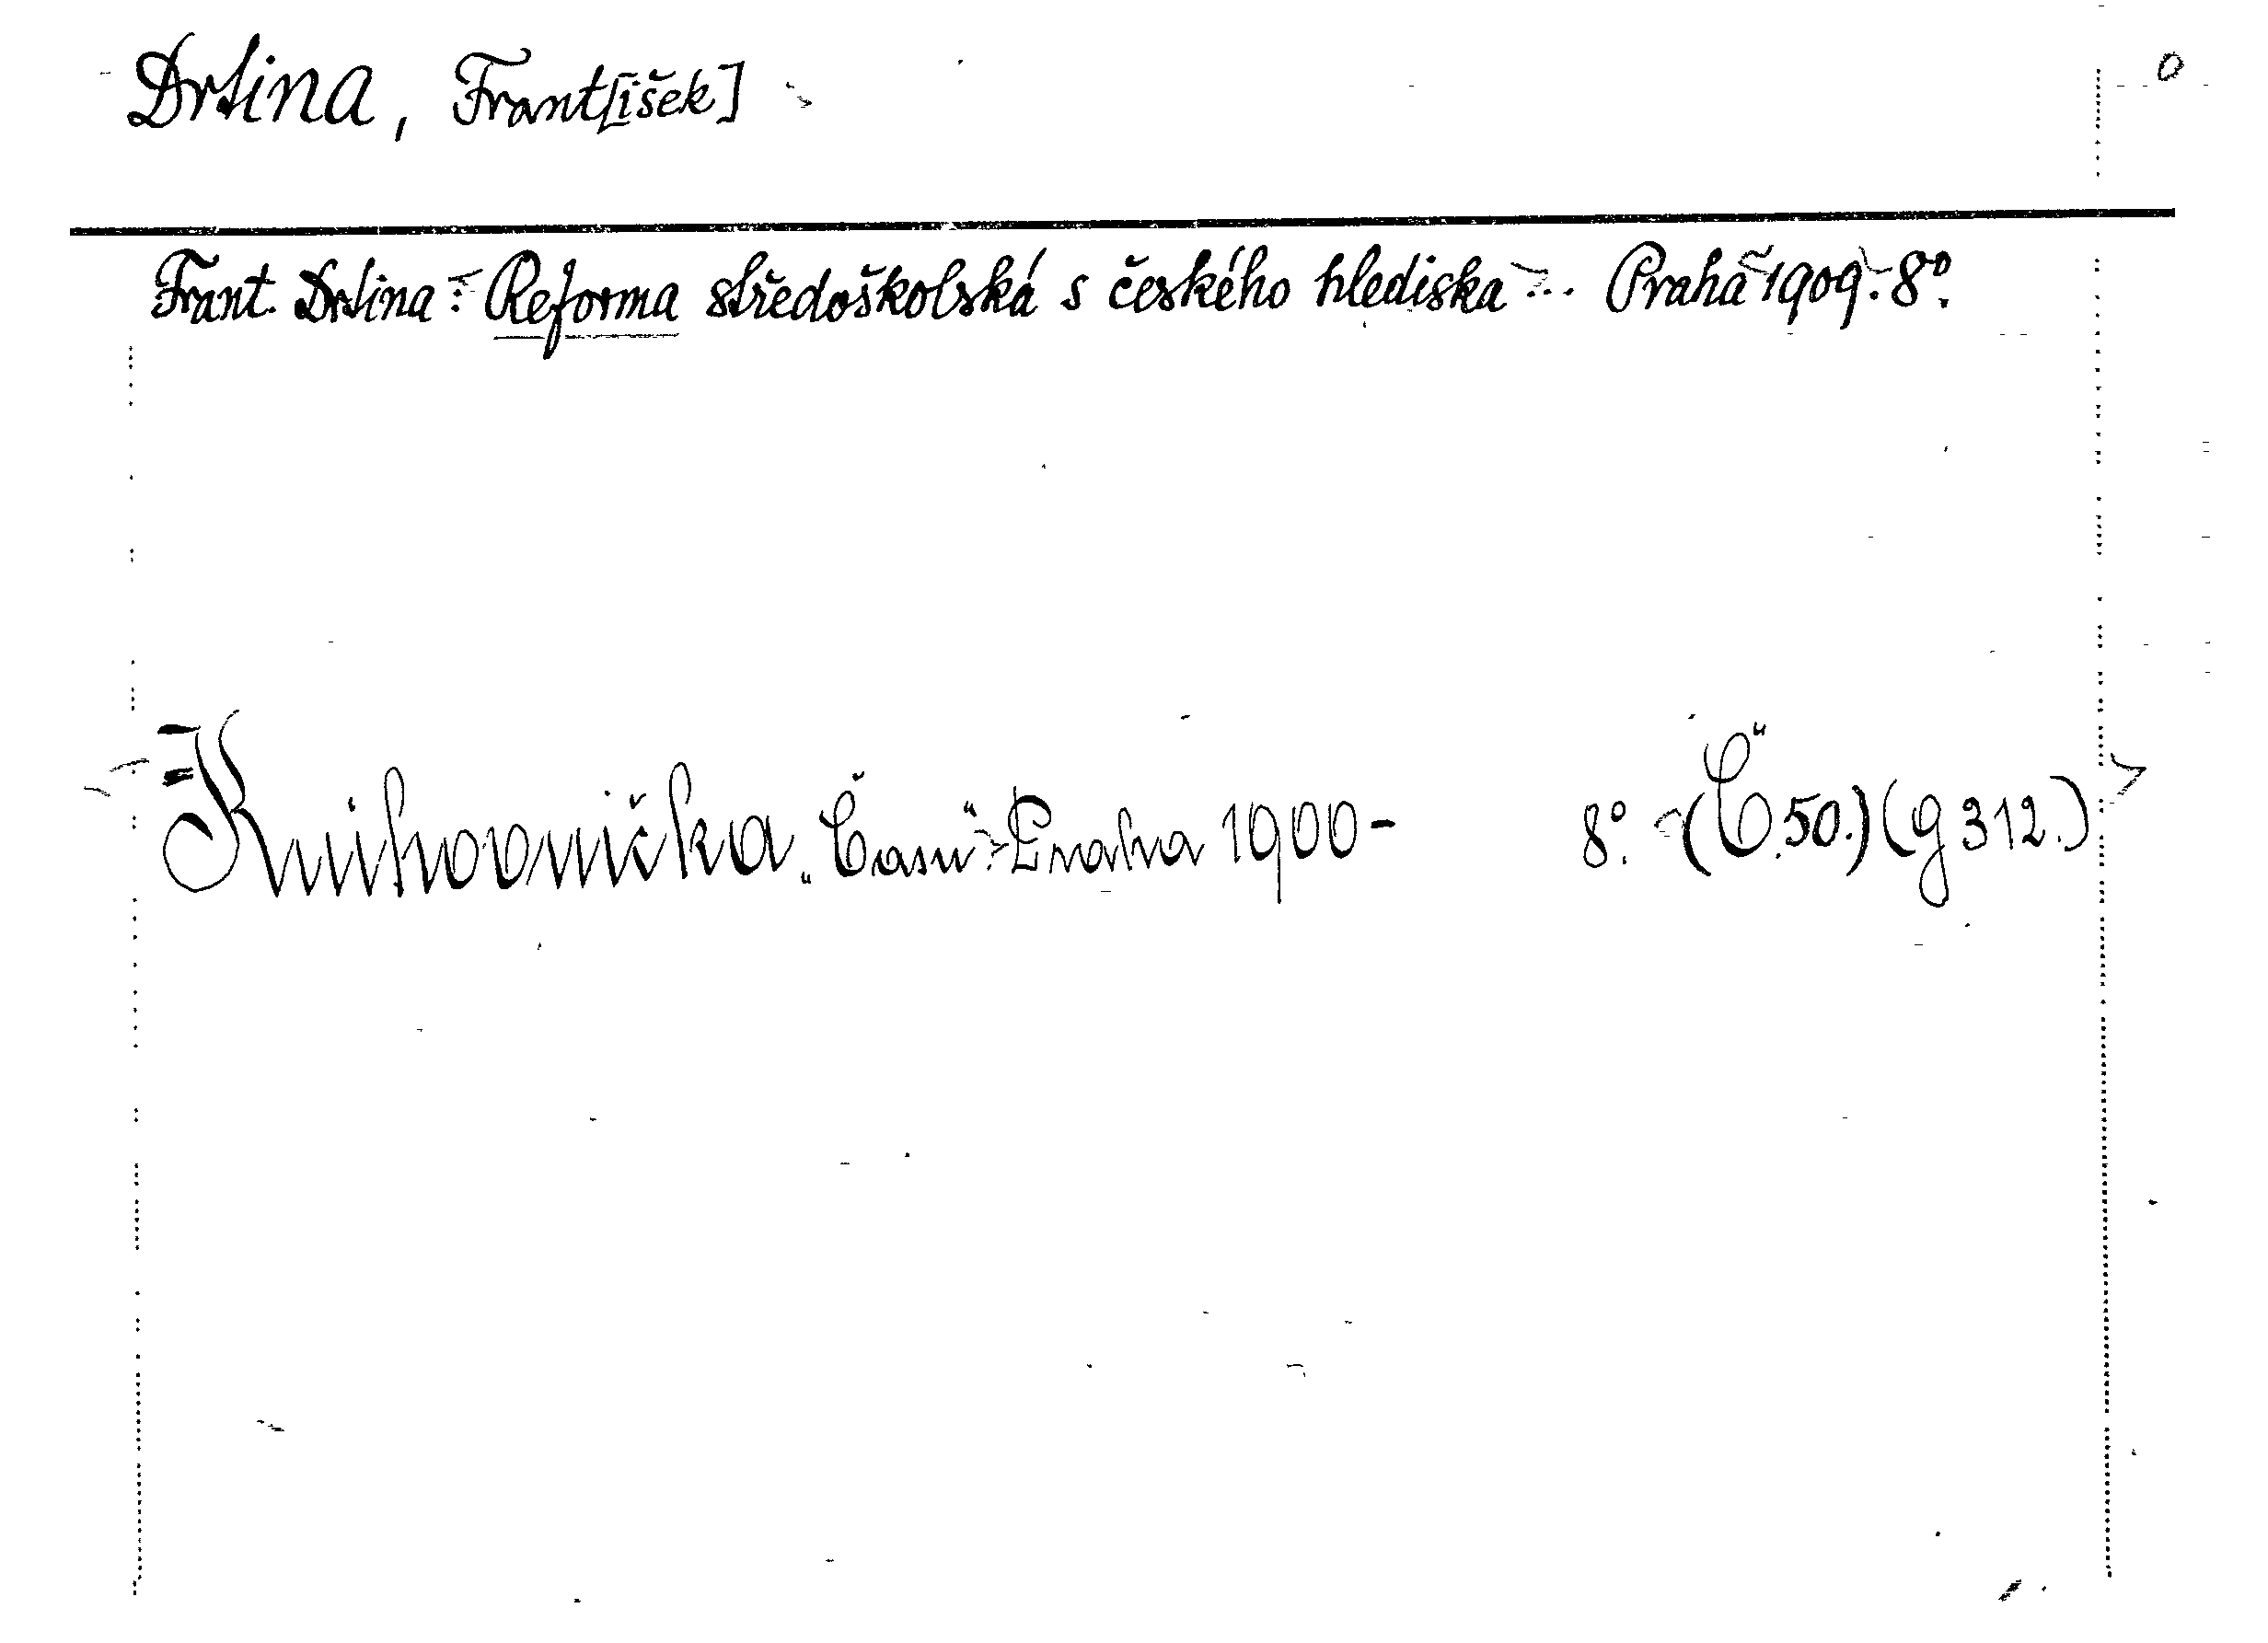 Drtina, Frant[išek]
0
Frant. Drtina: Reforma středoškolská s českého hlediska... Praha 1909. 8°.
= Knihovnička „Času“. Praha 1900- 8°. (Č. 50.) (g 312.)